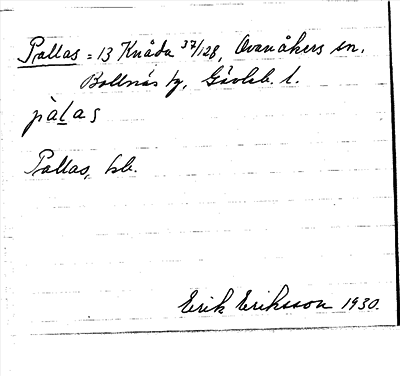 Pallas = 13 Knåda 37/128, Ovanåkers sn.
Bollnäs tg, Gävleb. l.
palas
Pallas, hb.
Erik Eriksson 1930.